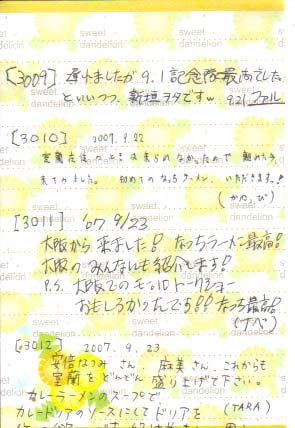 sweet dandelion
[3009] 遅れましたが 9.1記念隊最高でした。
といいつつ、新垣ヲタですw 9.21 ファル
[3010] 2007.9.22
室蘭在住
来てみました。 初めてのなっちラーメン、いただきます!
[3011] '07 9/23
大阪から来ました!! なっちラーメン最高!
大阪のみんなにも紹介します!
P.S. 大阪でのモベロトークショー
おもしろかったんでち!! なっち最高!
(ナベ)
[3012] 2007.9.23
安倍なつみさん、麻美さん、これからも
室蘭をどんどん盛り上げて下さい。
カレーラーメンのスープで
カレードリアのソースにしてドリアを (TARA)